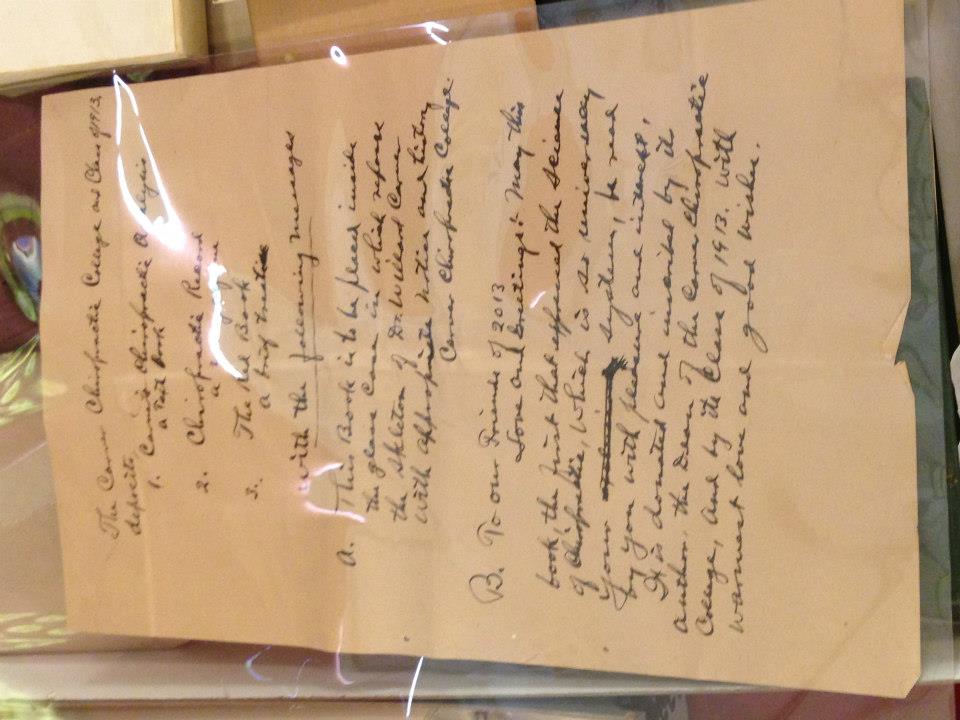 The Carver Chiropractic College and Class of 1913,
deposits,
1. Carver's Chiropractic Analysis
a Text Book
2. Chiropractic Record
a
3. The Red Book
a brief treatise
with the following messages
A. This Book is to be placed inside
the glass case in which repose
the skeleton of Dr. Willard Carver
with appropriate notice and history
Carver Chiropractic College.
B. To our Friends of 2013
Love and Greetings: May this
book, the first that expressed the science
of Chiropractic, which is so universally
your system, be read
by you with pleasure and interest,
It is donated and inscribed by its
author, the Dean of the Carver Chiropractic
College, and by its Class of 1913. with
warmest love and good wishes.